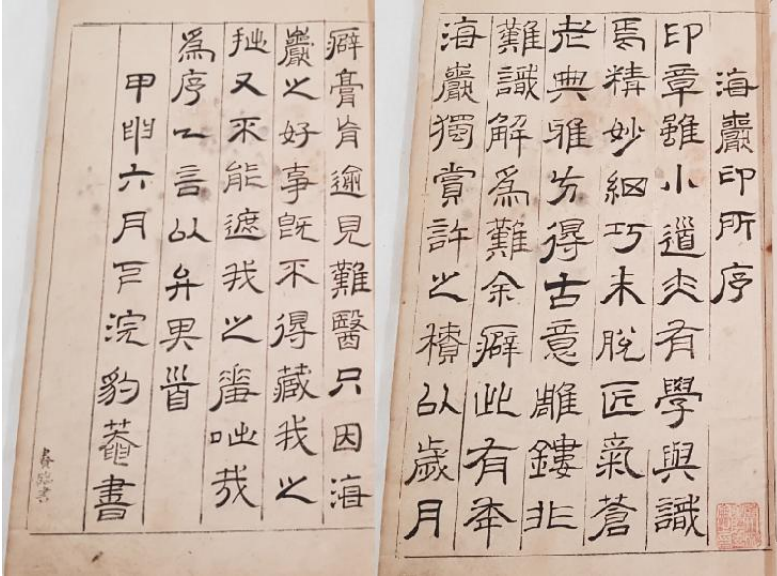 海巖印所序
印章雖小道亦有學與識
焉精妙細巧未脫匠氣蒼
老典雅方得古意雕鏤非
難識解爲難余癖此有年
海巖獨賞許之積以歲月
癖膏肓逾見難醫只因海
巖之好事旣不得藏我之
拙又不能遮我之醜咄哉
爲序工言以弁其首
甲申六月下浣豹菴書